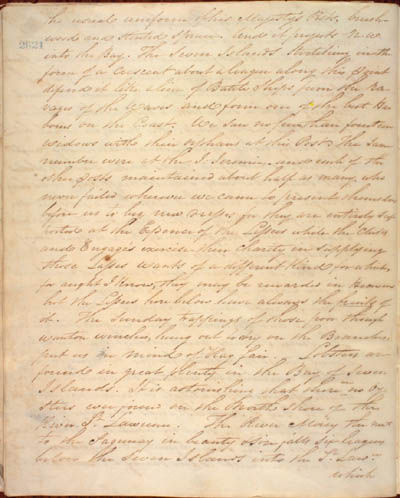 the usual uniform of his Majesty's Risk, brush
wood and stunted Spruce and it projects N.W.
2621
into the Bay. The Seven Islands stretching in the
form of a Crescent about a league along this
defend it like a line of Battle Ships from the Ra
vages of the Waves and form one of the best Har
bours on the Coast. We saw no fewer than fourteen
widows with their orphans at this Post. The same
number were at the I. Jeremie and each of the
other Posts maintained about half as many, who
never failed wherever we came to present themselves
before us to beg new Dresses for they are entirely Sup
ported at the Expence of the Lessees while the Clerks
and Engagés exercise their Charity in supplying
those Lasses wants of a different kind for which,
for aught I know, they may be rewarded in Heaven
but the Lessees here below have always the
of it. The Sunday trappings of those poor though
wanton wenches, hung out every on the Branches,
put us in mind of Rag fair. Lobsters are
found in great plenty in the Bay of Seven
Islands. It is astonishing that there no Oy
sters ever found on the North Shore of the
River St. Lawrence. The River Moisy
to the Saguenay in beauty & size falls Six leagues
below the Seven Islands into the St. Law
which